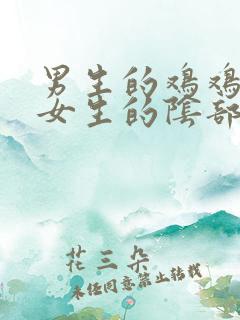 男生的鸡鸡
女生的陰部
花三朵
未经同意禁止转载